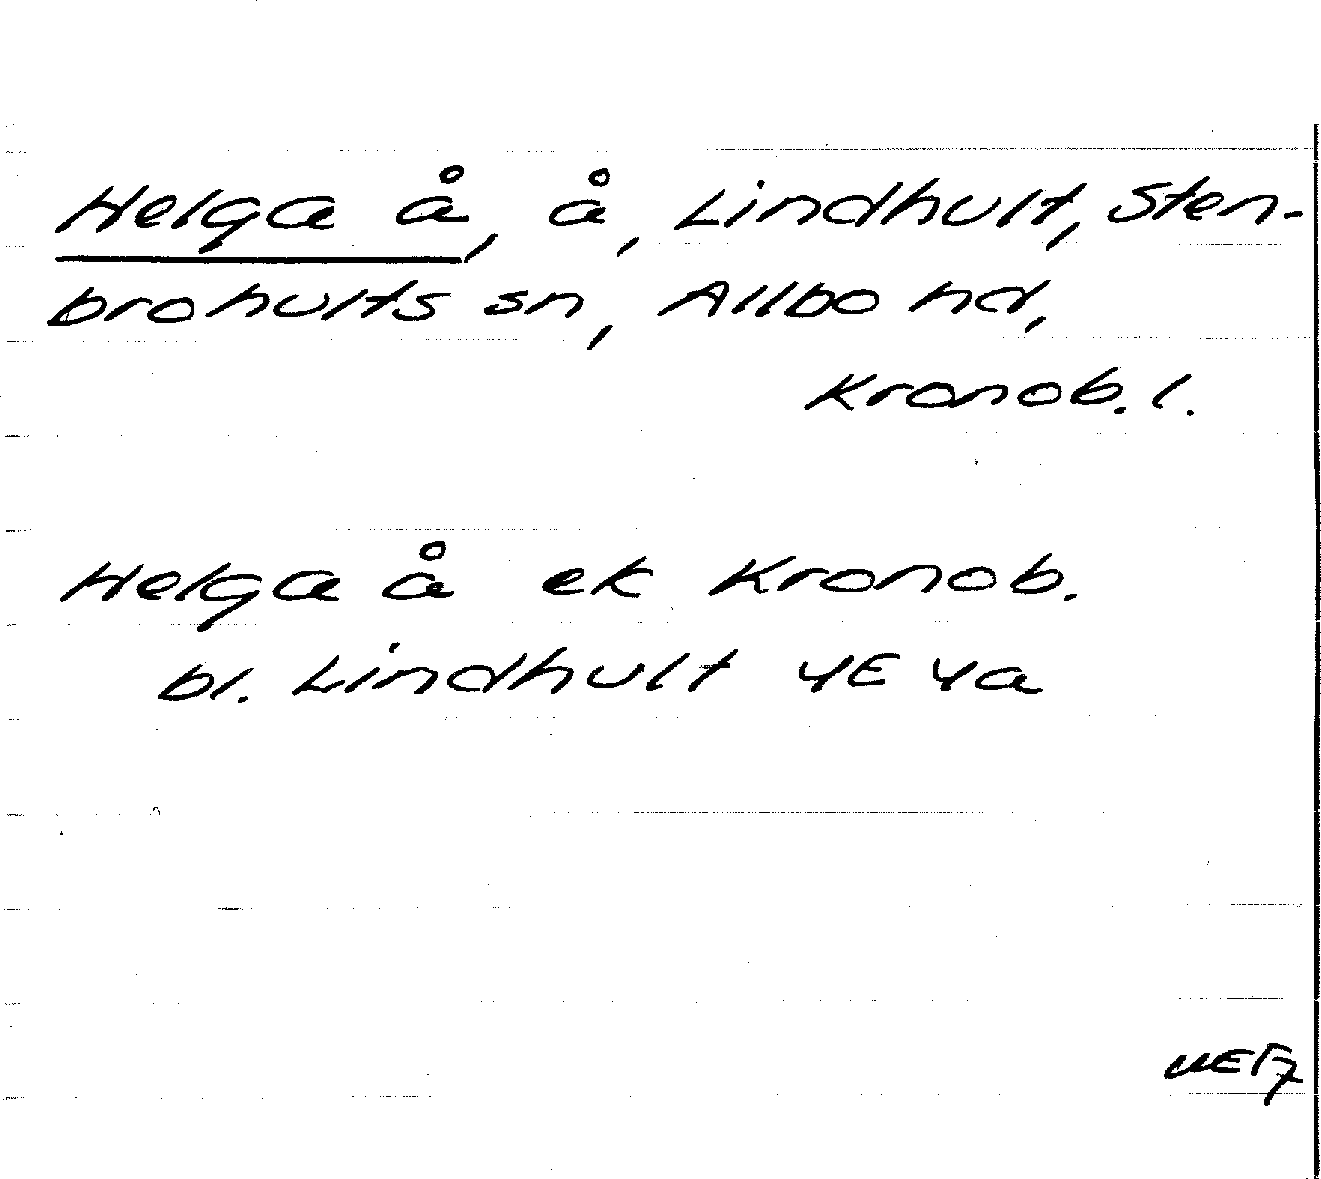 Helga å, å, Lindhult, Sten-
brohults sn, Allbo hd,
Kronob. l.
Helga å ek Kronob.
bl. Lindhult 4E 4a